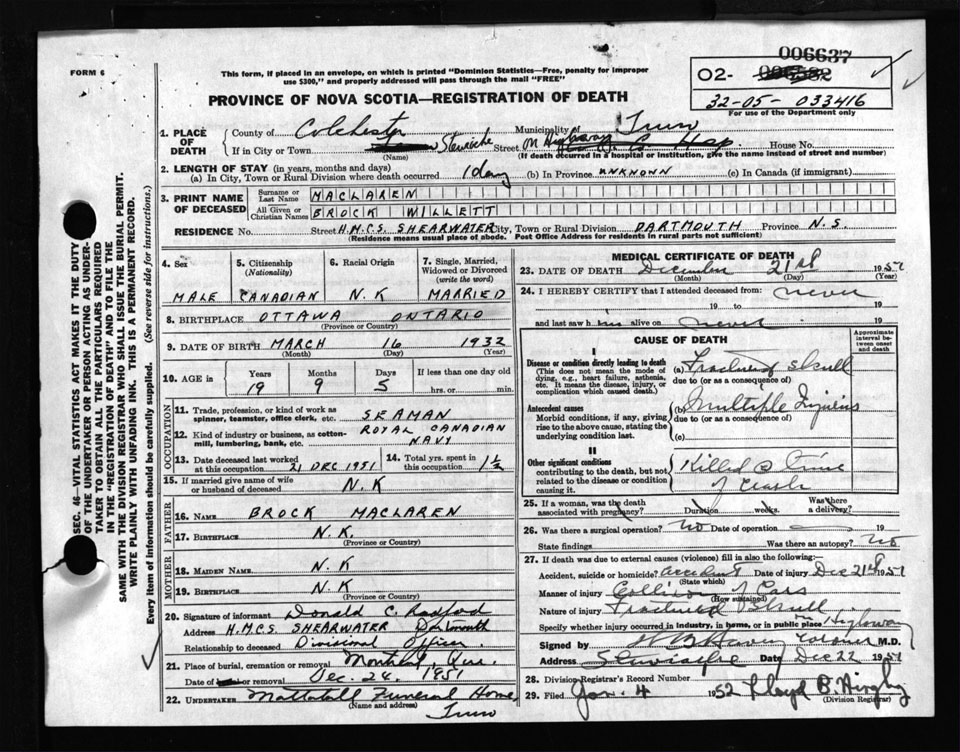 FORM 6
This form, if placed in an envelope, on which is printed "Dominion Statistics—Free, penalty for improper
use $300," and properly addressed will pass through the mail "FREE"
PROVINCE OF NOVA SCOTIA—REGISTRATION OF DEATH
006637
02-
32-05-033416
For use of the Department only
1. PLACE OF DEATH
County of Colchester Municipality of Truro
If in City or Town Stewiacke Street on Highway House No.
(Name) (If death occurred in a hospital or institution, give the name instead of street and number)
2. LENGTH OF STAY (in years, months and days)
(a) In City, Town or Rural Division where death occurred 1 day (b) In Province UNKNOWN (c) In Canada (if immigrant)
3. PRINT NAME OF DECEASED
Surname or Last Name MACLAREN
All Given or Christian Names BROCK WILLETT
RESIDENCE No. Street H.M.C.S. SHEARWATER City, Town or Rural Division DARTMOUTH Province N.S.
(Residence means usual place of abode. Post Office Address for residents in rural parts not sufficient)
4. Sex MALE
5. Citizenship (Nationality) CANADIAN
6. Racial Origin N.K
7. Single, Married, Widowed or Divorced (write the word) MARRIED
8. BIRTHPLACE OTTAWA ONTARIO
(Province or Country)
9. DATE OF BIRTH MARCH 16 1932
(Month) (Day) (Year)
10. AGE in Years Months Days If less than one day old
19 9 5 hrs. or min.
OCCUPATION
11. Trade, profession, or kind of work as spinner, teamster, office clerk, etc. SEAMAN
12. Kind of industry or business, as cotton-mill, lumbering, bank, etc. ROYAL CANADIAN NAVY
13. Date deceased last worked at this occupation 21 DEC 1951
14. Total yrs. spent in this occupation 1½
15. If married give name of wife or husband of deceased N.K
FATHER
16. NAME BROCK MACLAREN
17. BIRTHPLACE N.K.
(Province or Country)
MOTHER
18. MAIDEN NAME N.K
19. BIRTHPLACE N.K
(Province or Country)
20. Signature of informant Donald C. Radford
Address H.M.C.S. SHEARWATER Dartmouth
Relationship to deceased Divisional Officer.
21. Place of burial, cremation or removal Montreal, Que.
Date of burial or removal Dec. 24, 1951
22. UNDERTAKER Mattatall Funeral Home,
(Name and address)
Truro
MEDICAL CERTIFICATE OF DEATH
23. DATE OF DEATH December 21st 1951
(Day) (Year)
24. I HEREBY CERTIFY that I attended deceased from never
19 to 19
and last saw him alive on never 19
CAUSE OF DEATH
Approximate interval between onset and death
I
Disease or condition directly leading to death
(This does not mean the mode of dying, e.g., heart failure, asthenia, etc. It means the disease, injury, or complication which caused death.)
(a) Fracture of skull
due to (or as a consequence of)
Antecedent causes
Morbid conditions, if any, giving rise to the above cause, stating the underlying condition last.
(b) Multiple Injuries
due to (or as a consequence of)
(c)
II
Other significant conditions
contributing to the death, but not related to the disease or condition causing it.
Killed @ time
of crash
25. If a woman, was the death associated with pregnancy? Duration weeks. Was there a delivery?
26. Was there a surgical operation? No Date of operation 19
State findings Was there an autopsy? No
27. If death was due to external causes (violence) fill in also the following:—
Accident, suicide or homicide? accident Date of injury Dec 21st 1951
(State which)
Manner of injury Collision of Cars
(How sustained)
Nature of injury Fractured Skull
Specify whether injury occurred in industry, in home, or in public place on Highway
Signed by Coroner M.D.
Address Stewiacke Date Dec 22 1951
28. Division Registrar's Record Number
29. Filed Jan. 4 1952
(Division Registrar)
SEC. 46—VITAL STATISTICS ACT MAKES IT THE DUTY
OF THE UNDERTAKER OR PERSON ACTING AS UNDER-
TAKER TO OBTAIN ALL THE PARTICULARS REQUIRED
IN THE "REGISTRATION OF DEATH" AND TO FILE THE
SAME WITH THE DIVISION REGISTRAR WHO SHALL ISSUE THE BURIAL PERMIT.
WRITE PLAINLY WITH UNFADING INK. THIS IS A PERMANENT RECORD.
Every item of information should be carefully supplied. (See reverse side for instructions.)